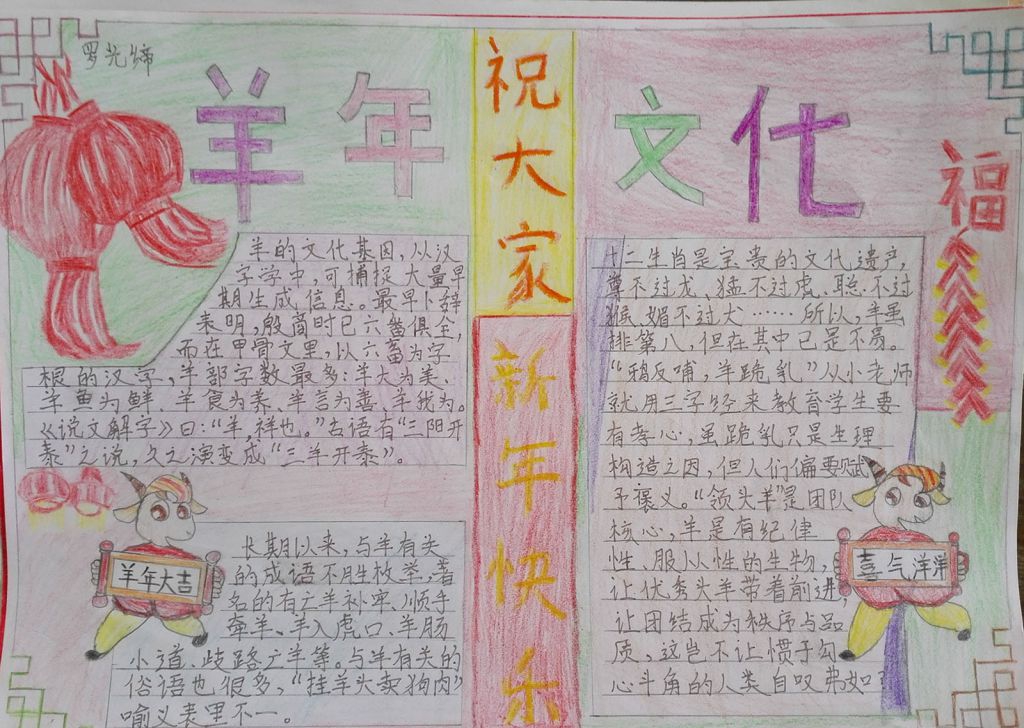 罗光缔
羊年
文化
祝大家
新年快乐
福
羊的文化基因，从汉
字学中，可捕捉大量早
期生成信息。最早卜辞
表明，殷商时已六畜俱全，
而在甲骨文里，以六畜为字
根的汉字，羊部字数最多：羊大为美、
羊鱼为鲜、羊食为养、羊言为善、羊我为。
《说文解字》曰：“羊，祥也。”古语有“三阳开
泰”之说，久之演变成“三羊开泰”。
羊年大吉
长期以来，与羊有关
的成语不胜枚举，著
名的有亡羊补牢、顺手
牵羊、羊入虎口、羊肠
小道、歧路亡羊等。与羊有关的
俗语也很多，“挂羊头卖狗肉”
喻义表里不一。
十二生肖是宝贵的文化遗产，
尊不过龙、猛不过虎、聪不过
猴、媚不过犬……所以，羊虽
排第八，但在其中已是不易。
“鸦反哺，羊跪乳”从小老师
就用三字经来教育学生要
有孝心，虽跪乳只是生理
构造之因，但人们偏要赋
予褒义。“领头羊”是团队
核心，羊是有纪律
性、服从性的生物，
让优秀头羊带着前进，
让团结成为秩序与品
质，这岂不让惯于勾
心斗角的人类自叹弗如？
喜气洋洋